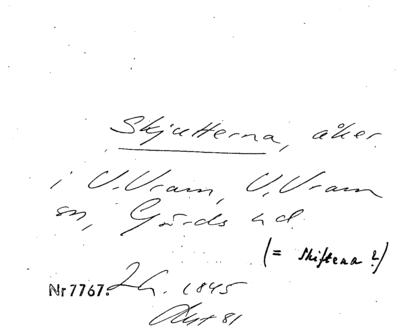 Skjutterna, åker
i V. Vram, V. Vram
sn, Gärds hd.
(= Skiftena?)
Nr 7767. 1845
81